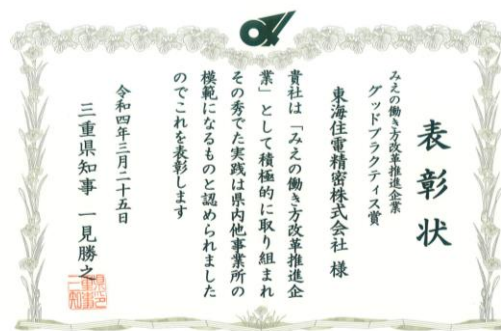 表彰状
みえの働き方改革推進企業
グッドプラクティス賞
東海住電精密株式会社 様
貴社は「みえの働き方改革推進企
業」として積極的に取り組まれ
その秀でた実践は県内他事業所の
模範になるものと認められました
のでこれを表彰します
令和四年三月二十五日
三重県知事 一見勝之